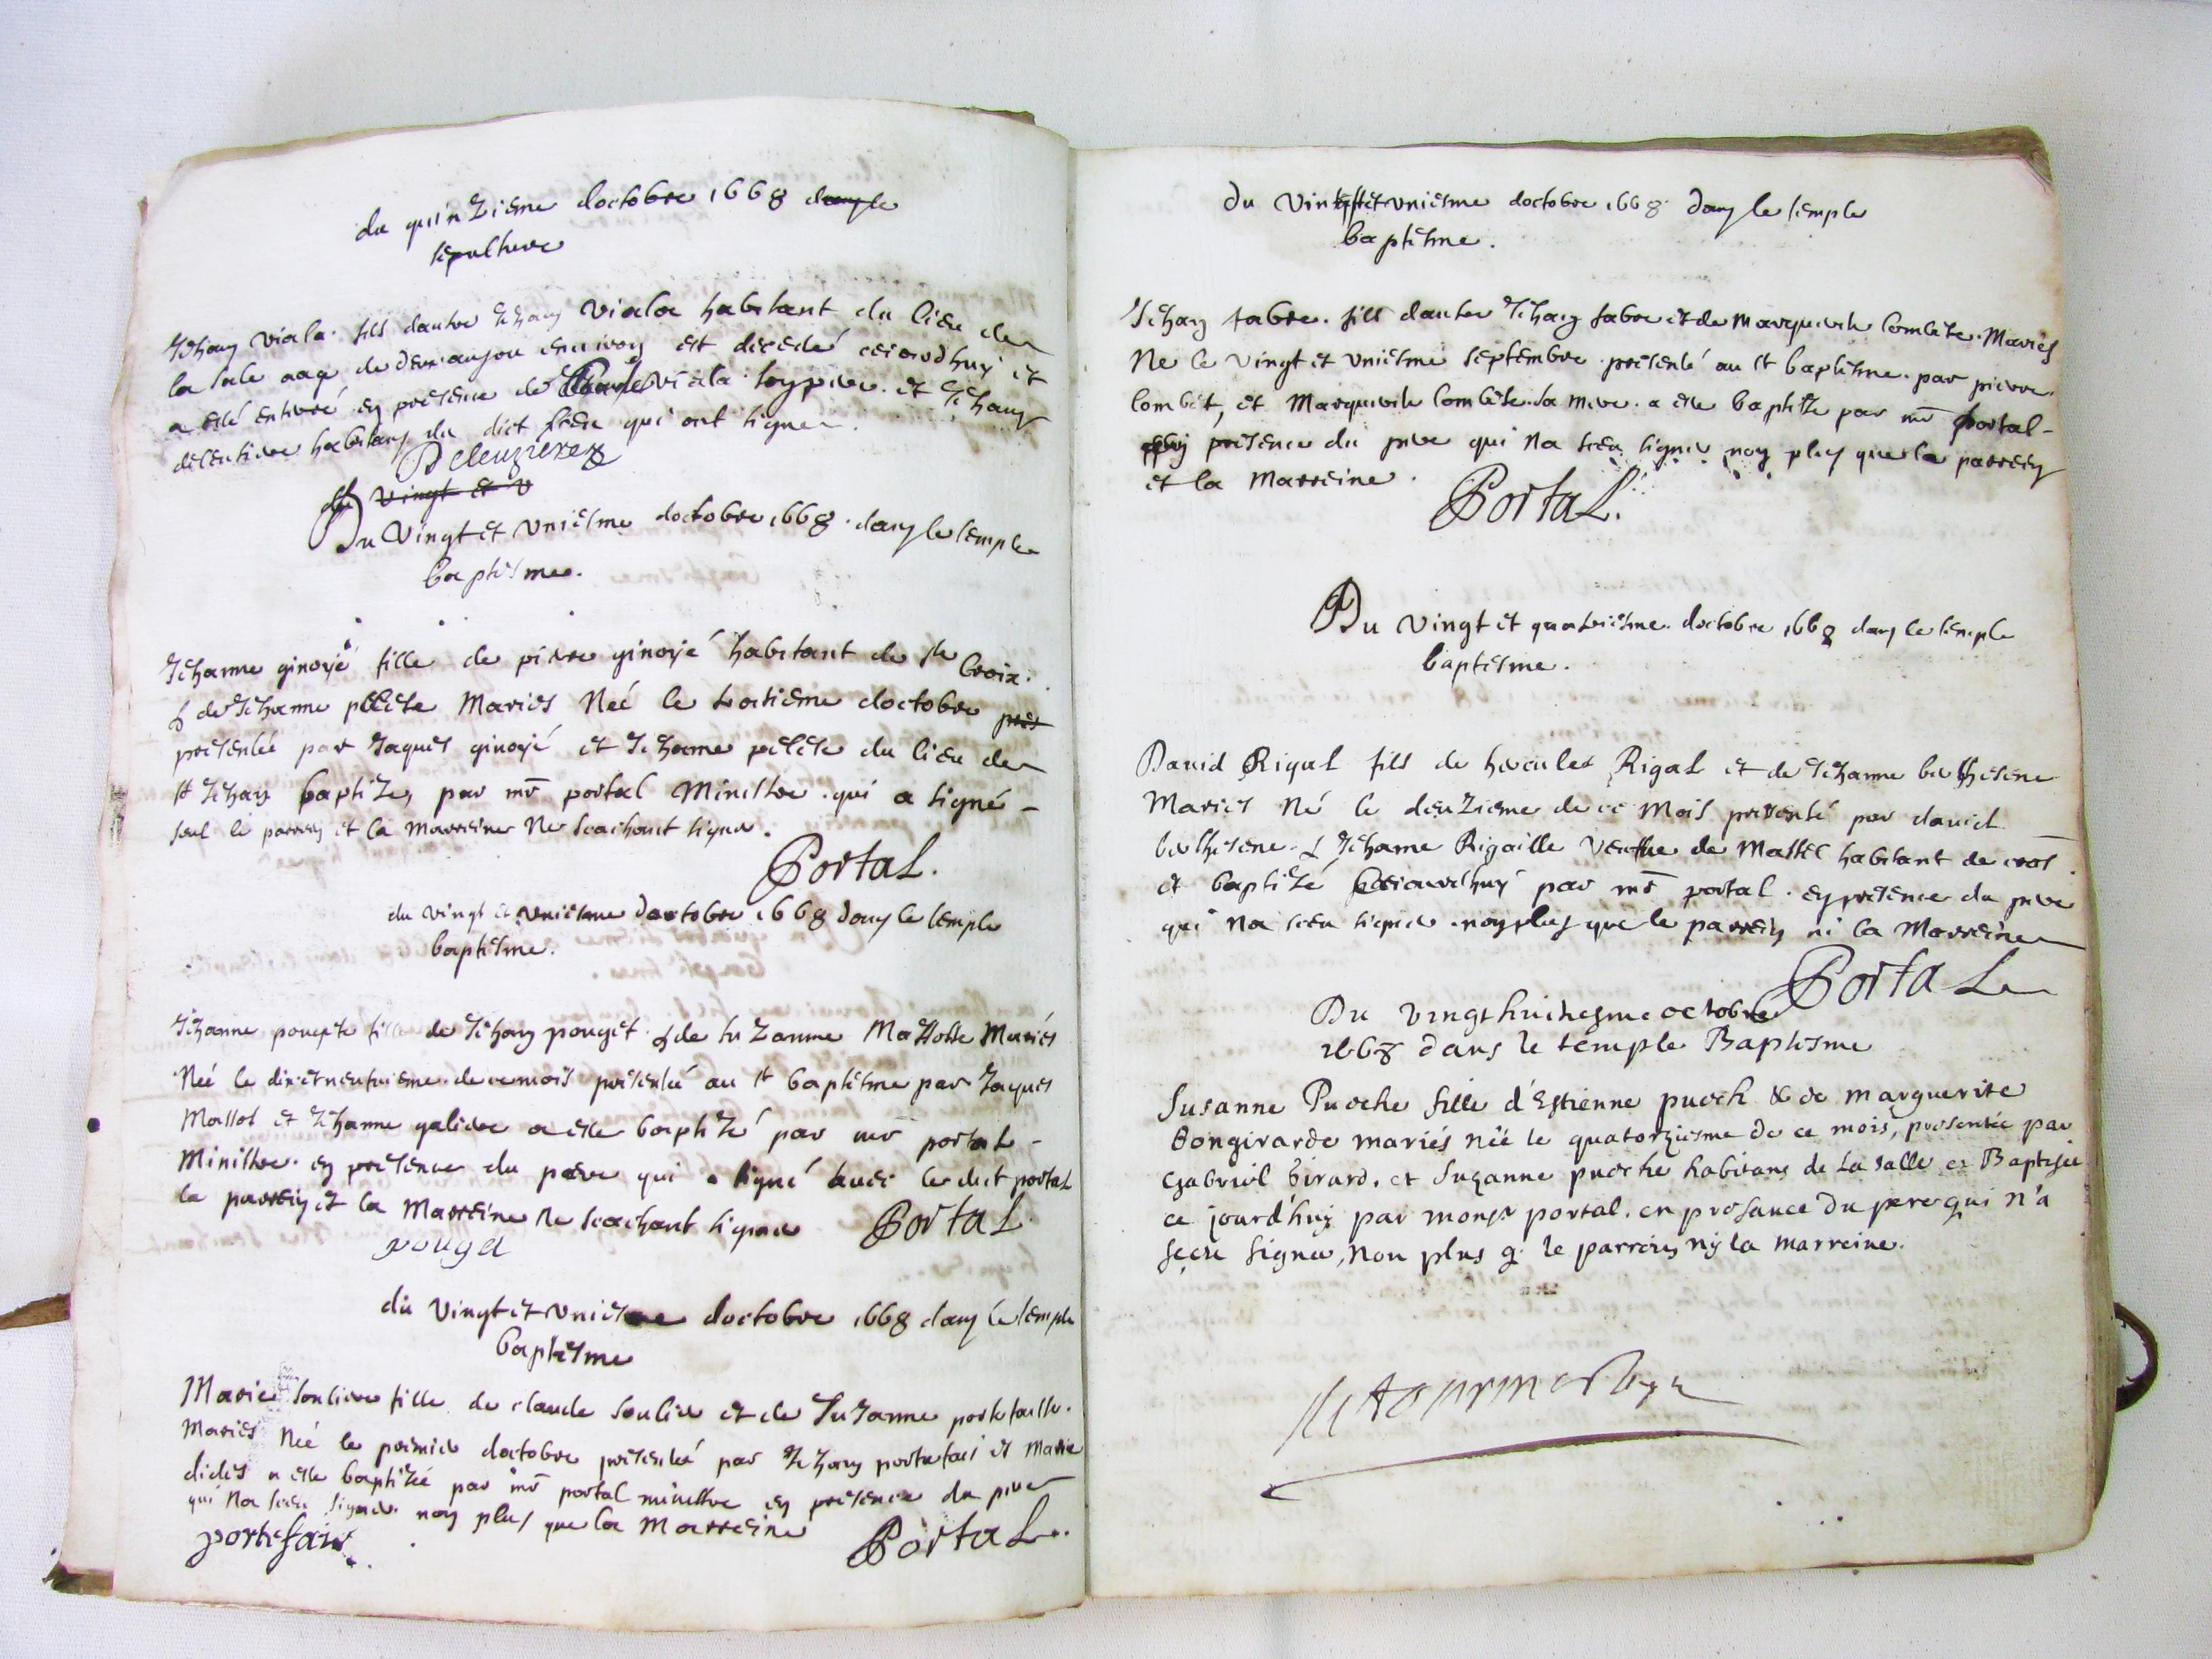 du quinzieme doctobre 1668 dans le
sepulture
Jehan viala fils dautre Jehan viala habitant du lieu de
la sale aage de deux ans ou environ est decedé ceiourdhuy et
a esté enterré en presence de viala son pere et Jehan
deleuziere habitans du dict lieu qui ont signe
Deleuzierez
du vingt et v
Du vingt et uniesme doctobre 1668 dans le temple
baptesme.
Jehanne ginoyé fille de pierre ginoyé habitant de ste Croix
& de Jehanne pelete Mariés Neé le doctobre pres
presentée par Jaques ginoyé et Jehanne pelete du lieu de
st Jehan baptize, par mr portal Ministre qui a signé
seul le parrein et la Marreine Ne scachant signer.
Portal.
du vingt et uniesme doctobre 1668 dans le temple
baptesme.
Jehanne pougete fille de Jehan pouget & de suzanne Massotte Mariés
Neé le dix et neufvieme de ce mois presenteé au st baptesme par Jaques
Massot et Jehanne galiere a este baptizé par mr portal
Ministre en presence du pere qui a signé avec le dict portal
le parrein et la Marreine Ne scachant signer Portal
pouget
du vingt et uniesme doctobre 1668 dans le temple
baptesme
Marie souliere fille de claude soulier et de Suzanne portefaisse
Mariés Neé le premier doctobre presenteé par Jehan portefais et Marie
dides a este baptizée par mr portal ministre en presence du pere
qui Na sceu signer non plus que la Marreine Portal.
portefaix
du vingt et uniesme doctobre 1668 dans le temple
baptesme.
Jehan fabre fils dautre Jehan fabre et de Marguerite Combete Mariés
Ne le vingt et uniesme septembre presenté au st baptesme par pierre
Combet, et Marguerite Combete sa mere a este baptize par mr portal
en presence du pere qui Na sceu signer non plus que le parrein
et la Marreine.
Portal.
Du vingt et quatriesme doctobre 1668 dans le temple
baptesme.
David Rigal fils de hercules Rigal et de Jehanne berthesene
Mariés Né le deuzieme de ce Mois presenté par david
berthesene & Jehanne Rigaille veufue de Massel habitant de cros
et baptizé ceiourdhuy par mr portal en presence du pere
qui Na sceu signer non plus que le parrein ni la Marreine
Portal
Du vingthuictiesme octobre
1668 dans le temple Baptesme
Susanne Pueche fille d'Estienne puech & de marguerite
Bongirarde mariés née le quatorziesme de ce mois, presentée par
Gabriel Girard, et Suzanne pueche habitans de La Salle et Baptisée
ce jourd'huy par monsr portal. en presance du pere qui n'a
sceu signer, Non plus q. le parrein ny la marreine.